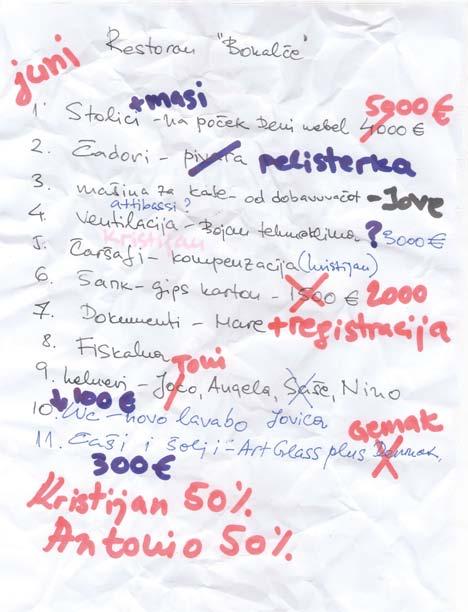 Restoran "Bokalče"
juni
+masi
5900 €
1. Stolici - na poček Deni mebel 4000 €
2. Čadori - pivara pelisterka
3. mašina za kafe - od dobavuvačot - Jove
attibassi?
4. Ventilacija - Bojan tehnoklima ? 3000 €
Kristijan
5. Čaršafi - kompenzacija (kristijan)
6. Šank - gips karton - 1500 € 2000
7. Dokumenti - Mare + registracija
8. Fiskalna
Toni
9. kelneri - Joco, Angela, Saše, Nino
100 €
10. Wc - novo lavabo Jovica
Gemak
11. Čaši i šolji - Art Glass plus
300 €
Kristijan 50%
Antonio 50%